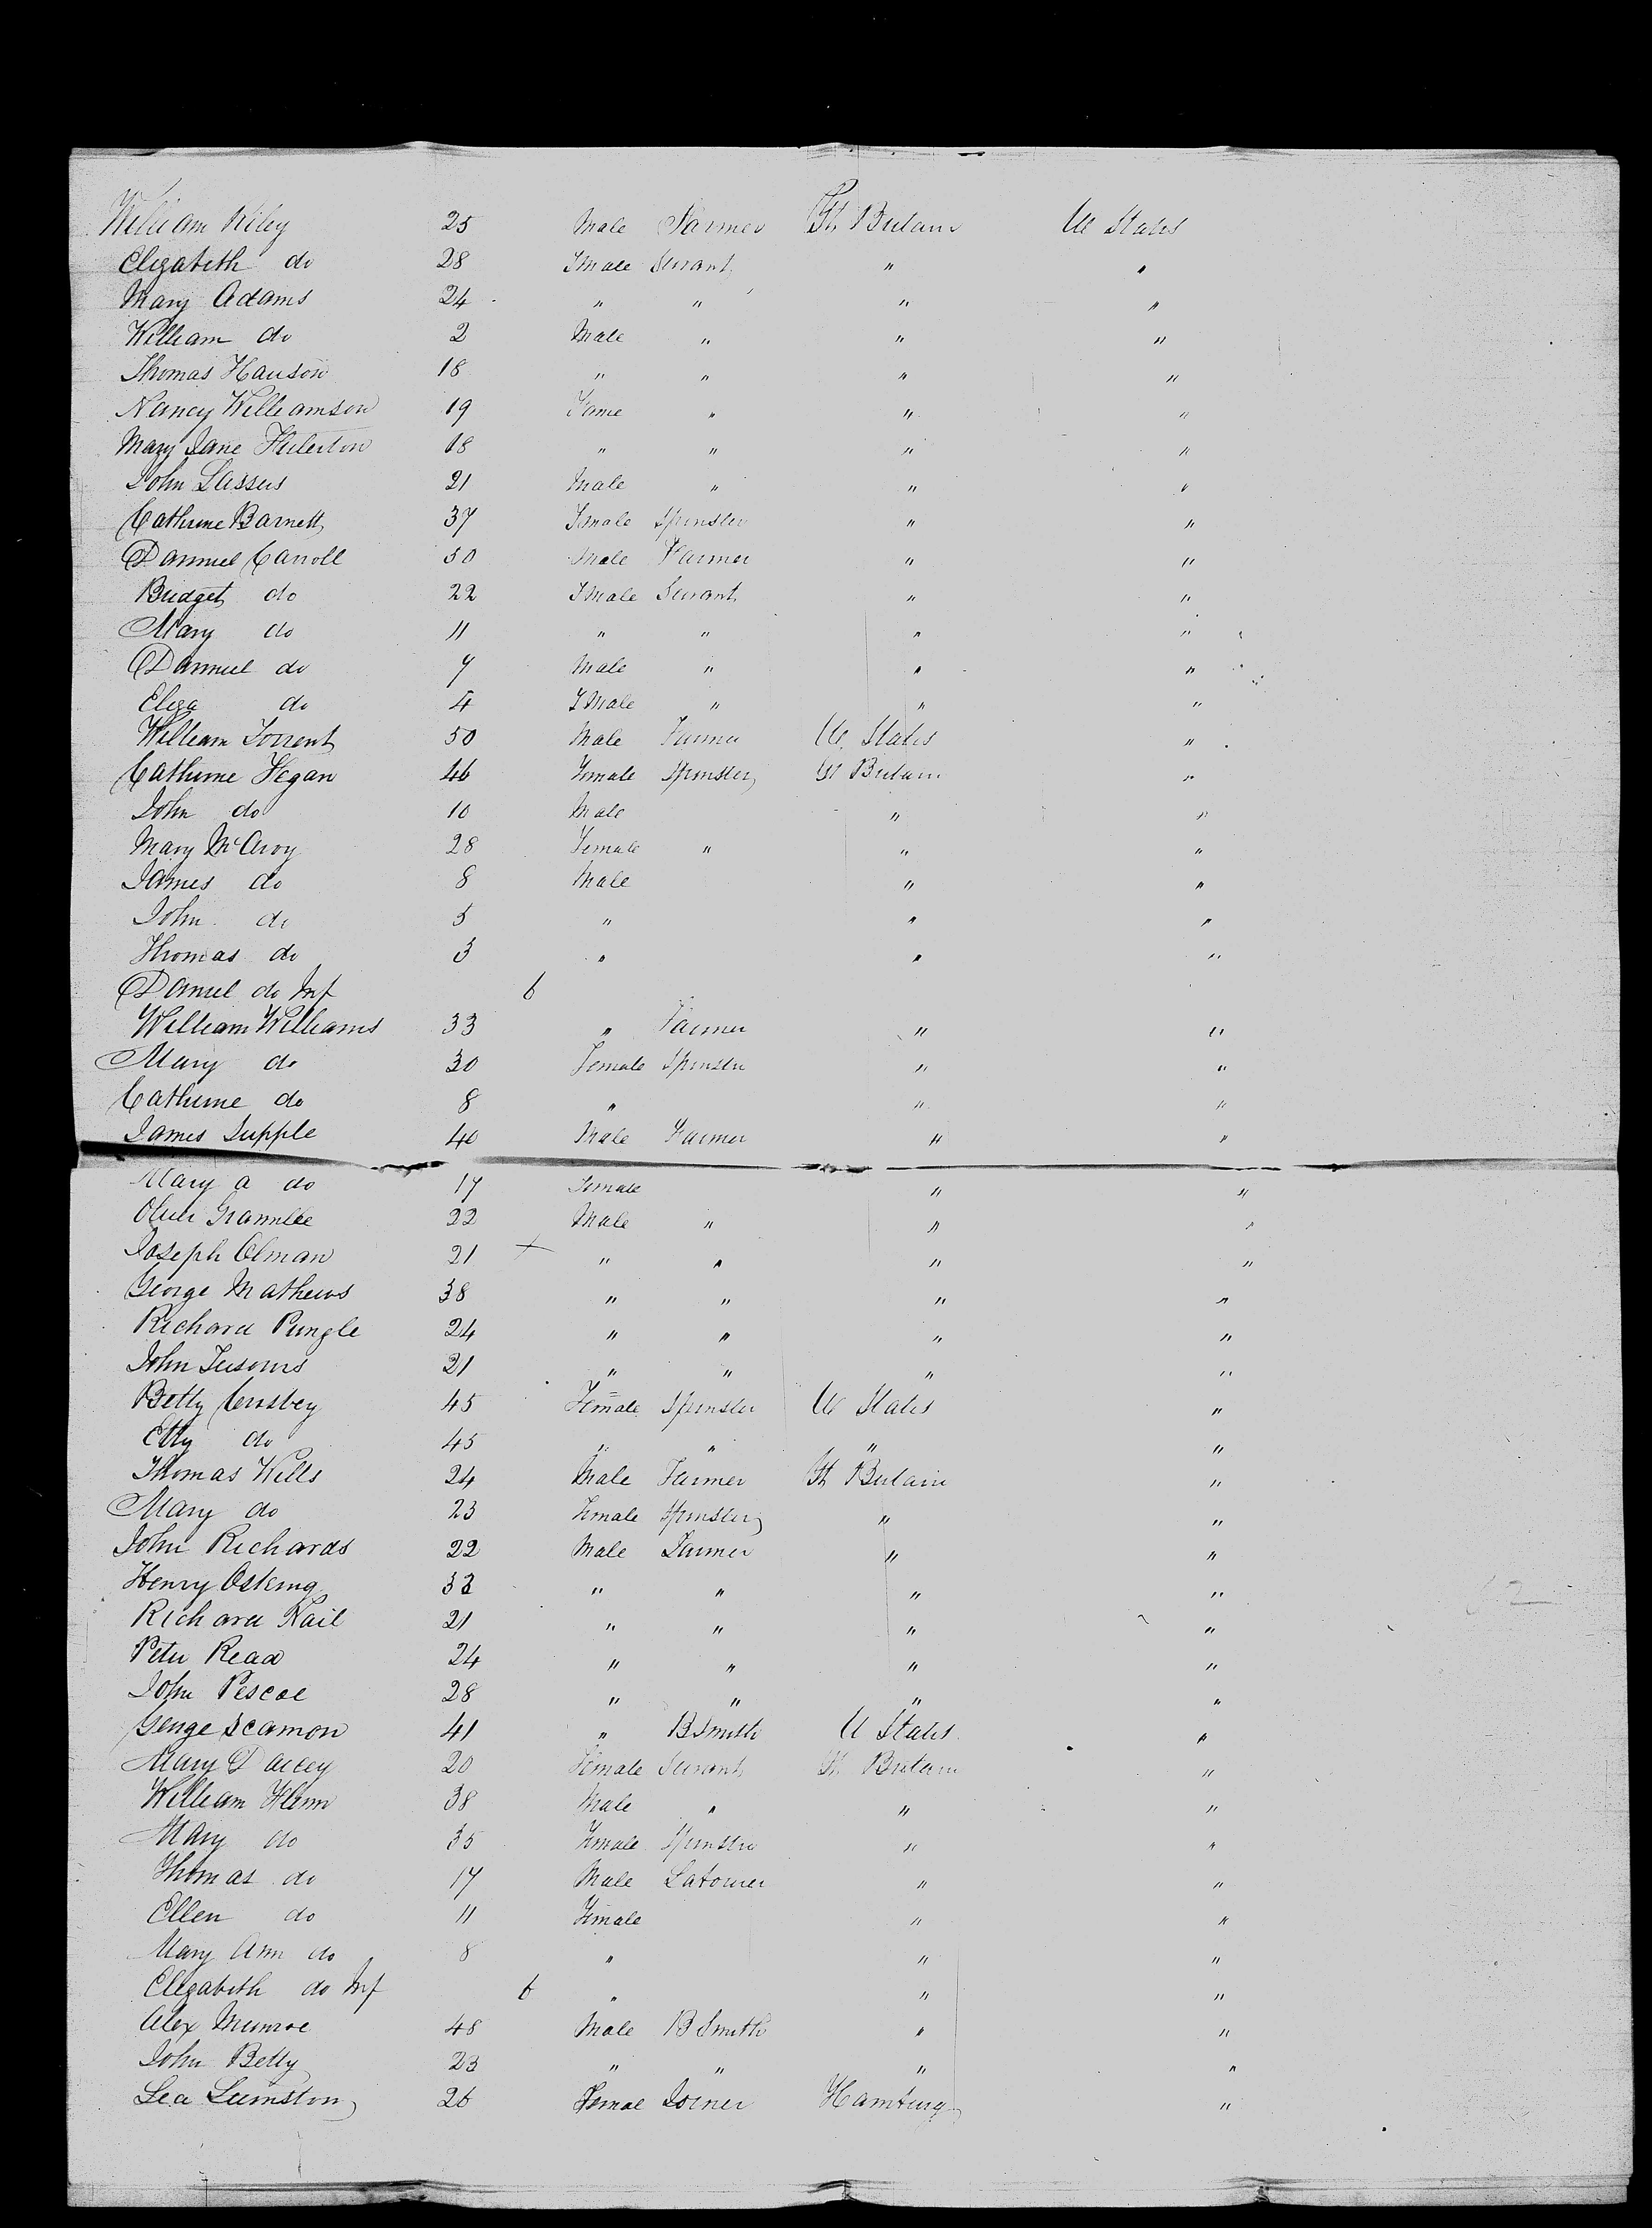 William Riley 25 Male Farmer Gt Britain U States
Elizabeth do 28 Fmale Servant " "
Mary Adams 24 " " " "
William do 2 Male " " "
Thomas Hanson 18 " " " "
Nancy Williamson 19 Fame " " "
Mary Jane Fulerton 18 " " " "
John Lassus 21 Male " " "
Catherine Barnett 37 Female Spinster " "
Danniel Carroll 50 Male Farmer " "
Bridget do 22 Fmale Servant " "
Mary do 11 " " " "
Danniel do 7 Male " " "
Eliza do 4 FMale " " "
William Torrent 50 Male Farmer U States "
Catherine Fegan 46 Female Spinster Gt Britain "
John do 10 Male " "
Mary McAvoy 28 Female " " "
James do 8 Male " "
John do 5 " " "
Thomas do 3 " " "
Daniel do Inf 6
William Williams 33 " Farmer " "
Mary do 30 Female Spinster " "
Catherine do 8 " " "
James Supple 40 Male Farmer " "
Mary a do 17 Female " "
Oliver 22 Male " " "
Joseph Olman 21 + " " " "
George Mathews 38 " " " "
Richard Pringle 24 " " " "
John 21 " " " "
Betty Crosbey 45 Female Spinster U States "
Etty do 45 " " " "
Thomas Wills 24 Male Farmer Gt Britain "
Mary do 23 Female Spinster " "
John Richards 22 Male Farmer " "
Henry Osking 33 " " " "
Richard Hail 21 " " " "
Peter Read 24 " " " "
John Pescoe 28 " " " "
George Scamon 41 " BSmith U States "
Mary Darcey 20 Female Servant Gt Britain "
William Flinn 38 Male " " "
Mary do 35 Female Spinster " "
Thomas do 17 Male Labourer " "
Ellen do 11 Female " "
Mary Ann do 8 " " "
Elizabeth do Inf 6 " " "
Alex Munroe 48 Male BSmith " "
John Betty 23 " " " "
Lea 26 Femal Joiner Hamburg "
62